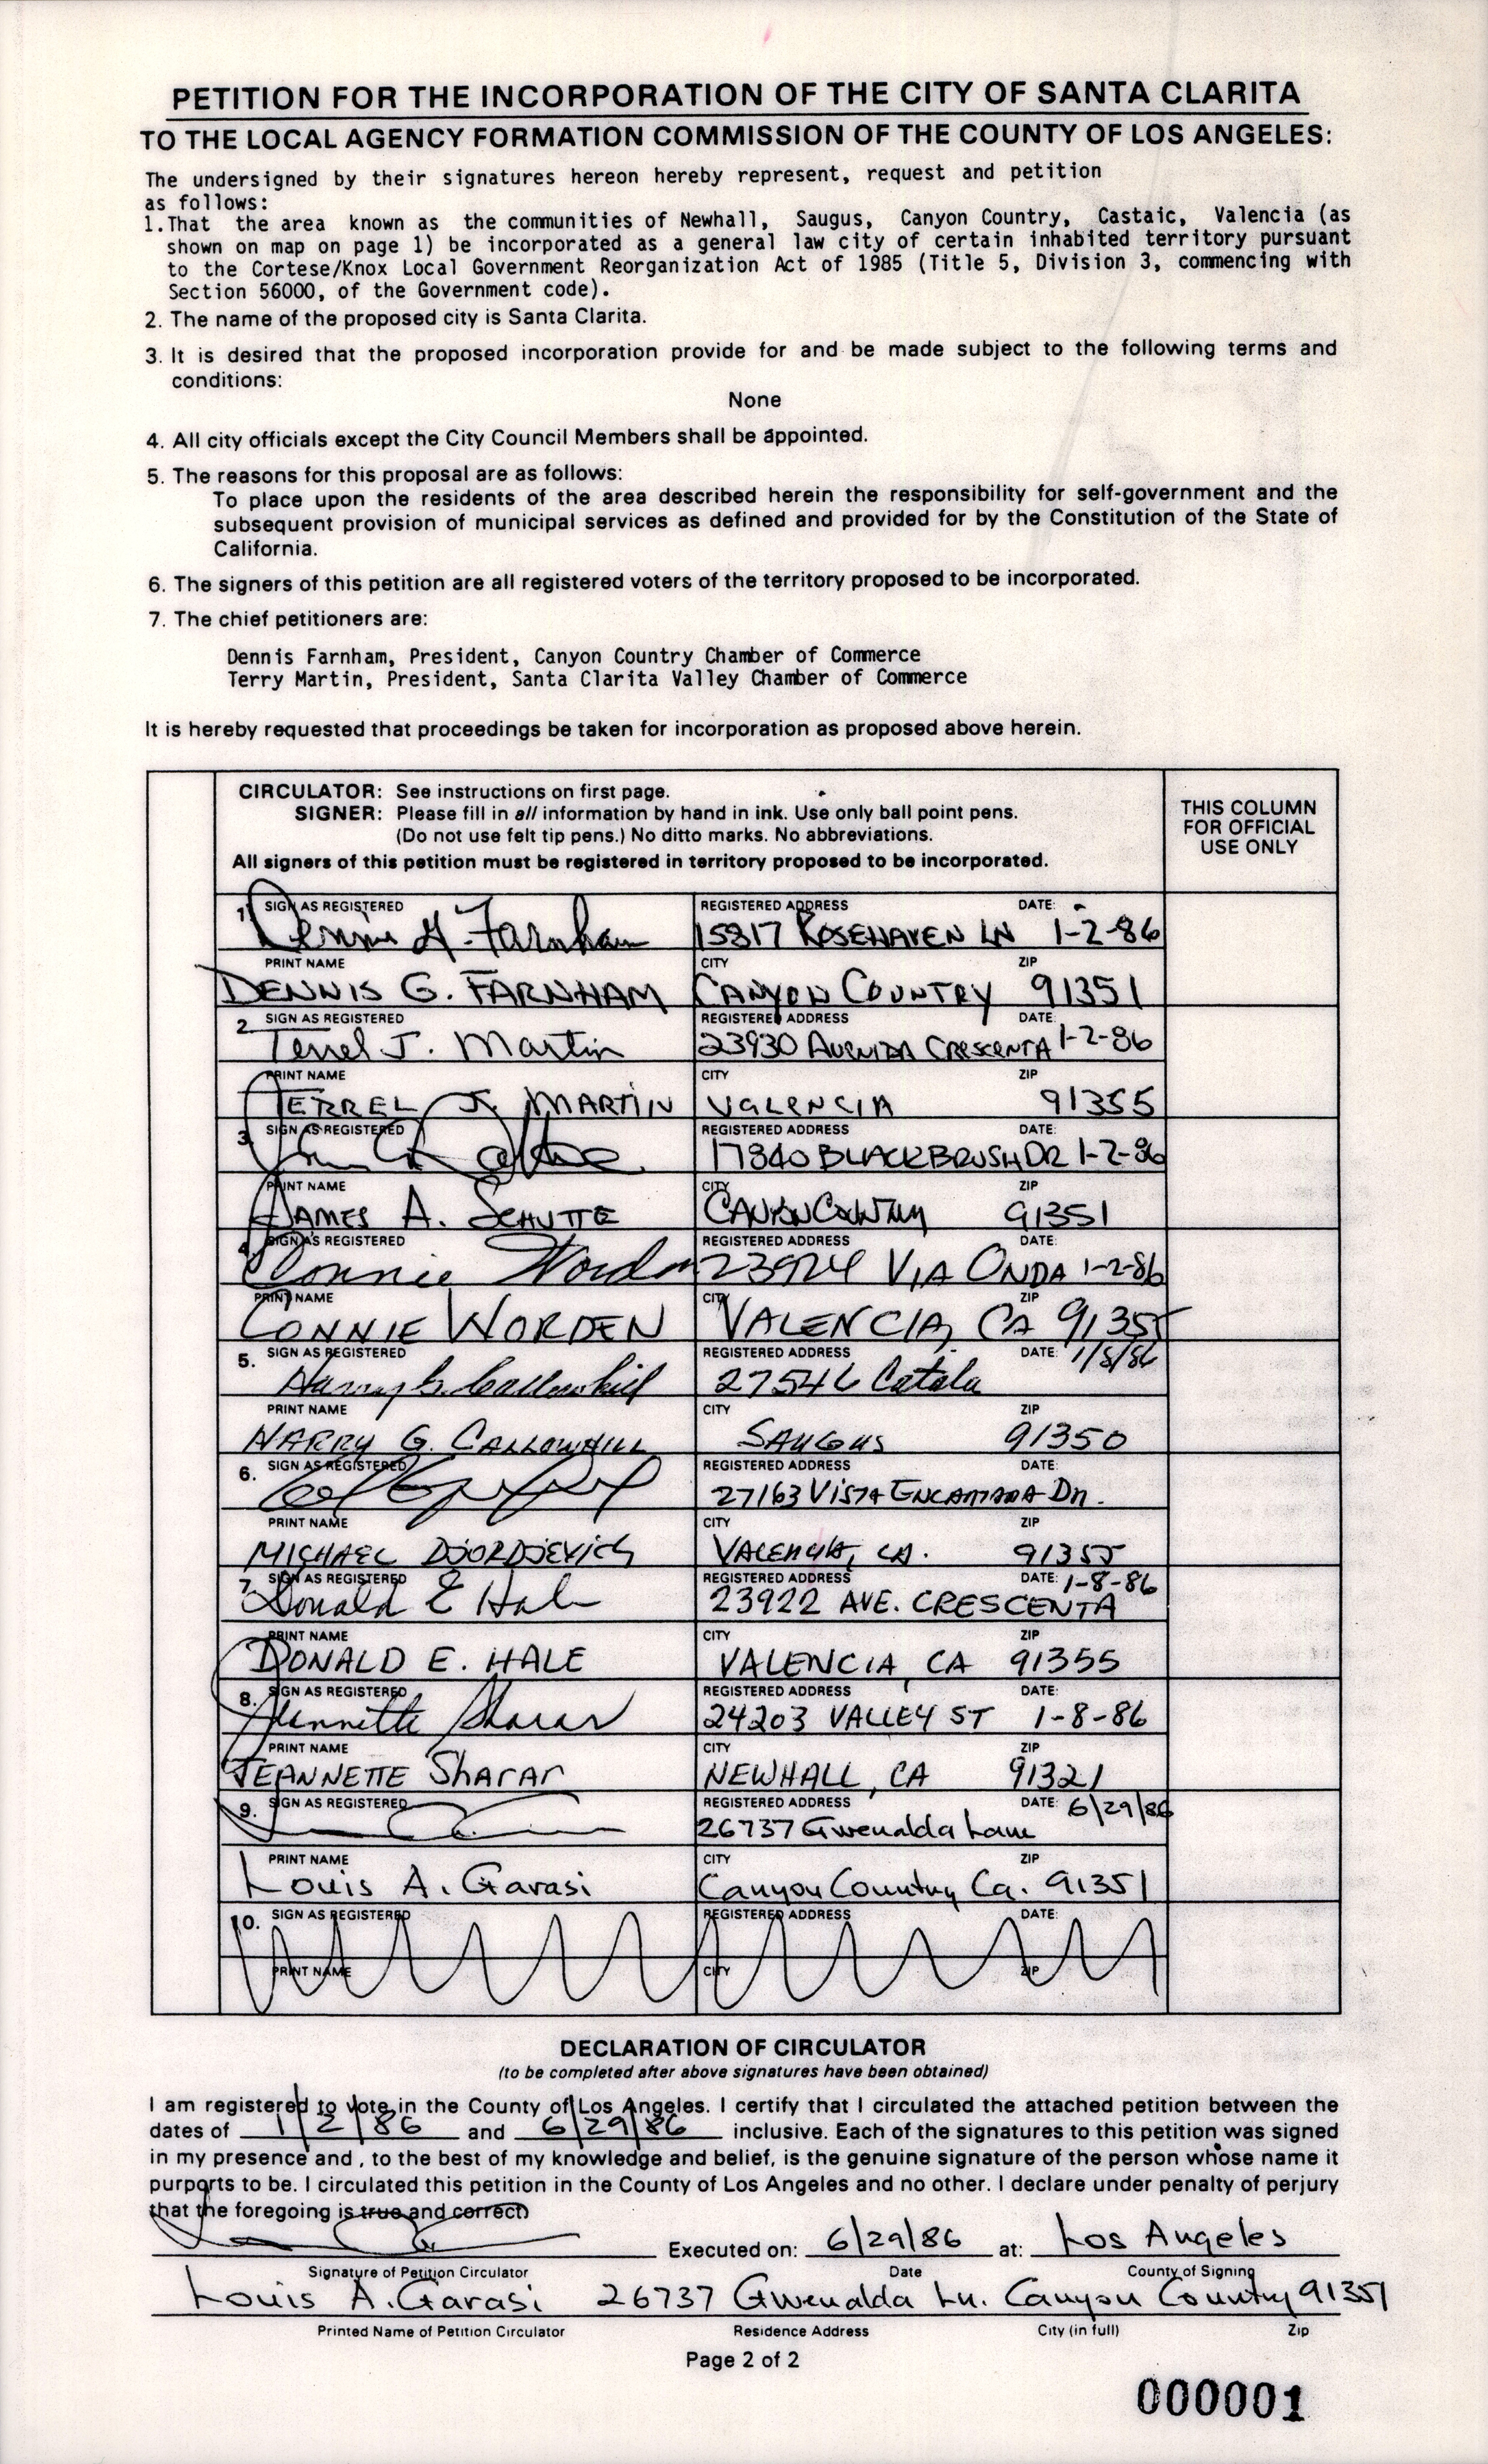 PETITION FOR THE INCORPORATION OF THE CITY OF SANTA CLARITA
TO THE LOCAL AGENCY FORMATION COMMISSION OF THE COUNTY OF LOS ANGELES:
The undersigned by their signatures hereon hereby represent, request and petition
as follows:
1. That the area known as the communities of Newhall, Saugus, Canyon Country, Castaic, Valencia (as
shown on map on page 1) be incorporated as a general law city of certain inhabited territory pursuant
to the Cortese/Knox Local Government Reorganization Act of 1985 (Title 5, Division 3, commencing with
Section 56000, of the Government code).
2. The name of the proposed city is Santa Clarita.
3. It is desired that the proposed incorporation provide for and be made subject to the following terms and
conditions:
None
4. All city officials except the City Council Members shall be appointed.
5. The reasons for this proposal are as follows:
To place upon the residents of the area described herein the responsibility for self-government and the
subsequent provision of municipal services as defined and provided for by the Constitution of the State of
California.
6. The signers of this petition are all registered voters of the territory proposed to be incorporated.
7. The chief petitioners are:
Dennis Farnham, President, Canyon Country Chamber of Commerce
Terry Martin, President, Santa Clarita Valley Chamber of Commerce
It is hereby requested that proceedings be taken for incorporation as proposed above herein.
CIRCULATOR: See instructions on first page.
SIGNER: Please fill in all information by hand in ink. Use only ball point pens.
(Do not use felt tip pens.) No ditto marks. No abbreviations.
All signers of this petition must be registered in territory proposed to be incorporated.
THIS COLUMN
FOR OFFICIAL
USE ONLY
1. SIGN AS REGISTERED REGISTERED ADDRESS DATE:
Dennis G. Farnham 15817 ROSEHAVEN LN 1-2-86
PRINT NAME CITY ZIP
DENNIS G. FARNHAM CANYON COUNTRY 91351
2. SIGN AS REGISTERED REGISTERED ADDRESS DATE:
Terrel J. Martin 23930 AVENIDA CRESCENTA 1-2-86
PRINT NAME CITY ZIP
TERREL J. MARTIN VALENCIA 91355
3. SIGN AS REGISTERED REGISTERED ADDRESS DATE:
17840 BLACKBRUSH DR 1-2-86
PRINT NAME CITY ZIP
JAMES A. SCHUTTE CANYON COUNTRY 91351
4. SIGN AS REGISTERED REGISTERED ADDRESS DATE:
Connie Worden 23924 VIA ONDA 1-2-86
PRINT NAME CITY ZIP
CONNIE WORDEN VALENCIA, CA 91355
5. SIGN AS REGISTERED REGISTERED ADDRESS DATE: 1/8/86
Harry G. Callowhill 27546 Catala
PRINT NAME CITY ZIP
HARRY G. CALLOWHILL SAUGUS 91350
6. SIGN AS REGISTERED REGISTERED ADDRESS DATE:
27163 VISTA ENCANTADA DR.
PRINT NAME CITY ZIP
MICHAEL DJORDJEVICH VALENCIA, CA. 91355
7. SIGN AS REGISTERED REGISTERED ADDRESS DATE: 1-8-86
Donald E Hale 23922 AVE. CRESCENTA
PRINT NAME CITY ZIP
DONALD E. HALE VALENCIA, CA 91355
8. SIGN AS REGISTERED REGISTERED ADDRESS DATE:
Jeannette Sharar 24203 VALLEY ST 1-8-86
PRINT NAME CITY ZIP
JEANNETTE SHARAR NEWHALL, CA 91321
9. SIGN AS REGISTERED REGISTERED ADDRESS DATE: 6/29/86
26737 Gwenalda Lane
PRINT NAME CITY ZIP
Louis A. Garasi Canyon Country Ca. 91351
10. SIGN AS REGISTERED REGISTERED ADDRESS DATE:
PRINT NAME CITY ZIP
DECLARATION OF CIRCULATOR
(to be completed after above signatures have been obtained)
I am registered to vote in the County of Los Angeles. I certify that I circulated the attached petition between the
dates of 1/2/86 and 6/29/86 inclusive. Each of the signatures to this petition was signed
in my presence and , to the best of my knowledge and belief, is the genuine signature of the person whose name it
purports to be. I circulated this petition in the County of Los Angeles and no other. I declare under penalty of perjury
that the foregoing is true and correct)
Executed on: 6/29/86 at: Los Angeles
Signature of Petition Circulator Date County of Signing
Louis A. Garasi 26737 Gwenalda Ln. Canyon Country 91351
Printed Name of Petition Circulator Residence Address City (in full) Zip
Page 2 of 2
000001